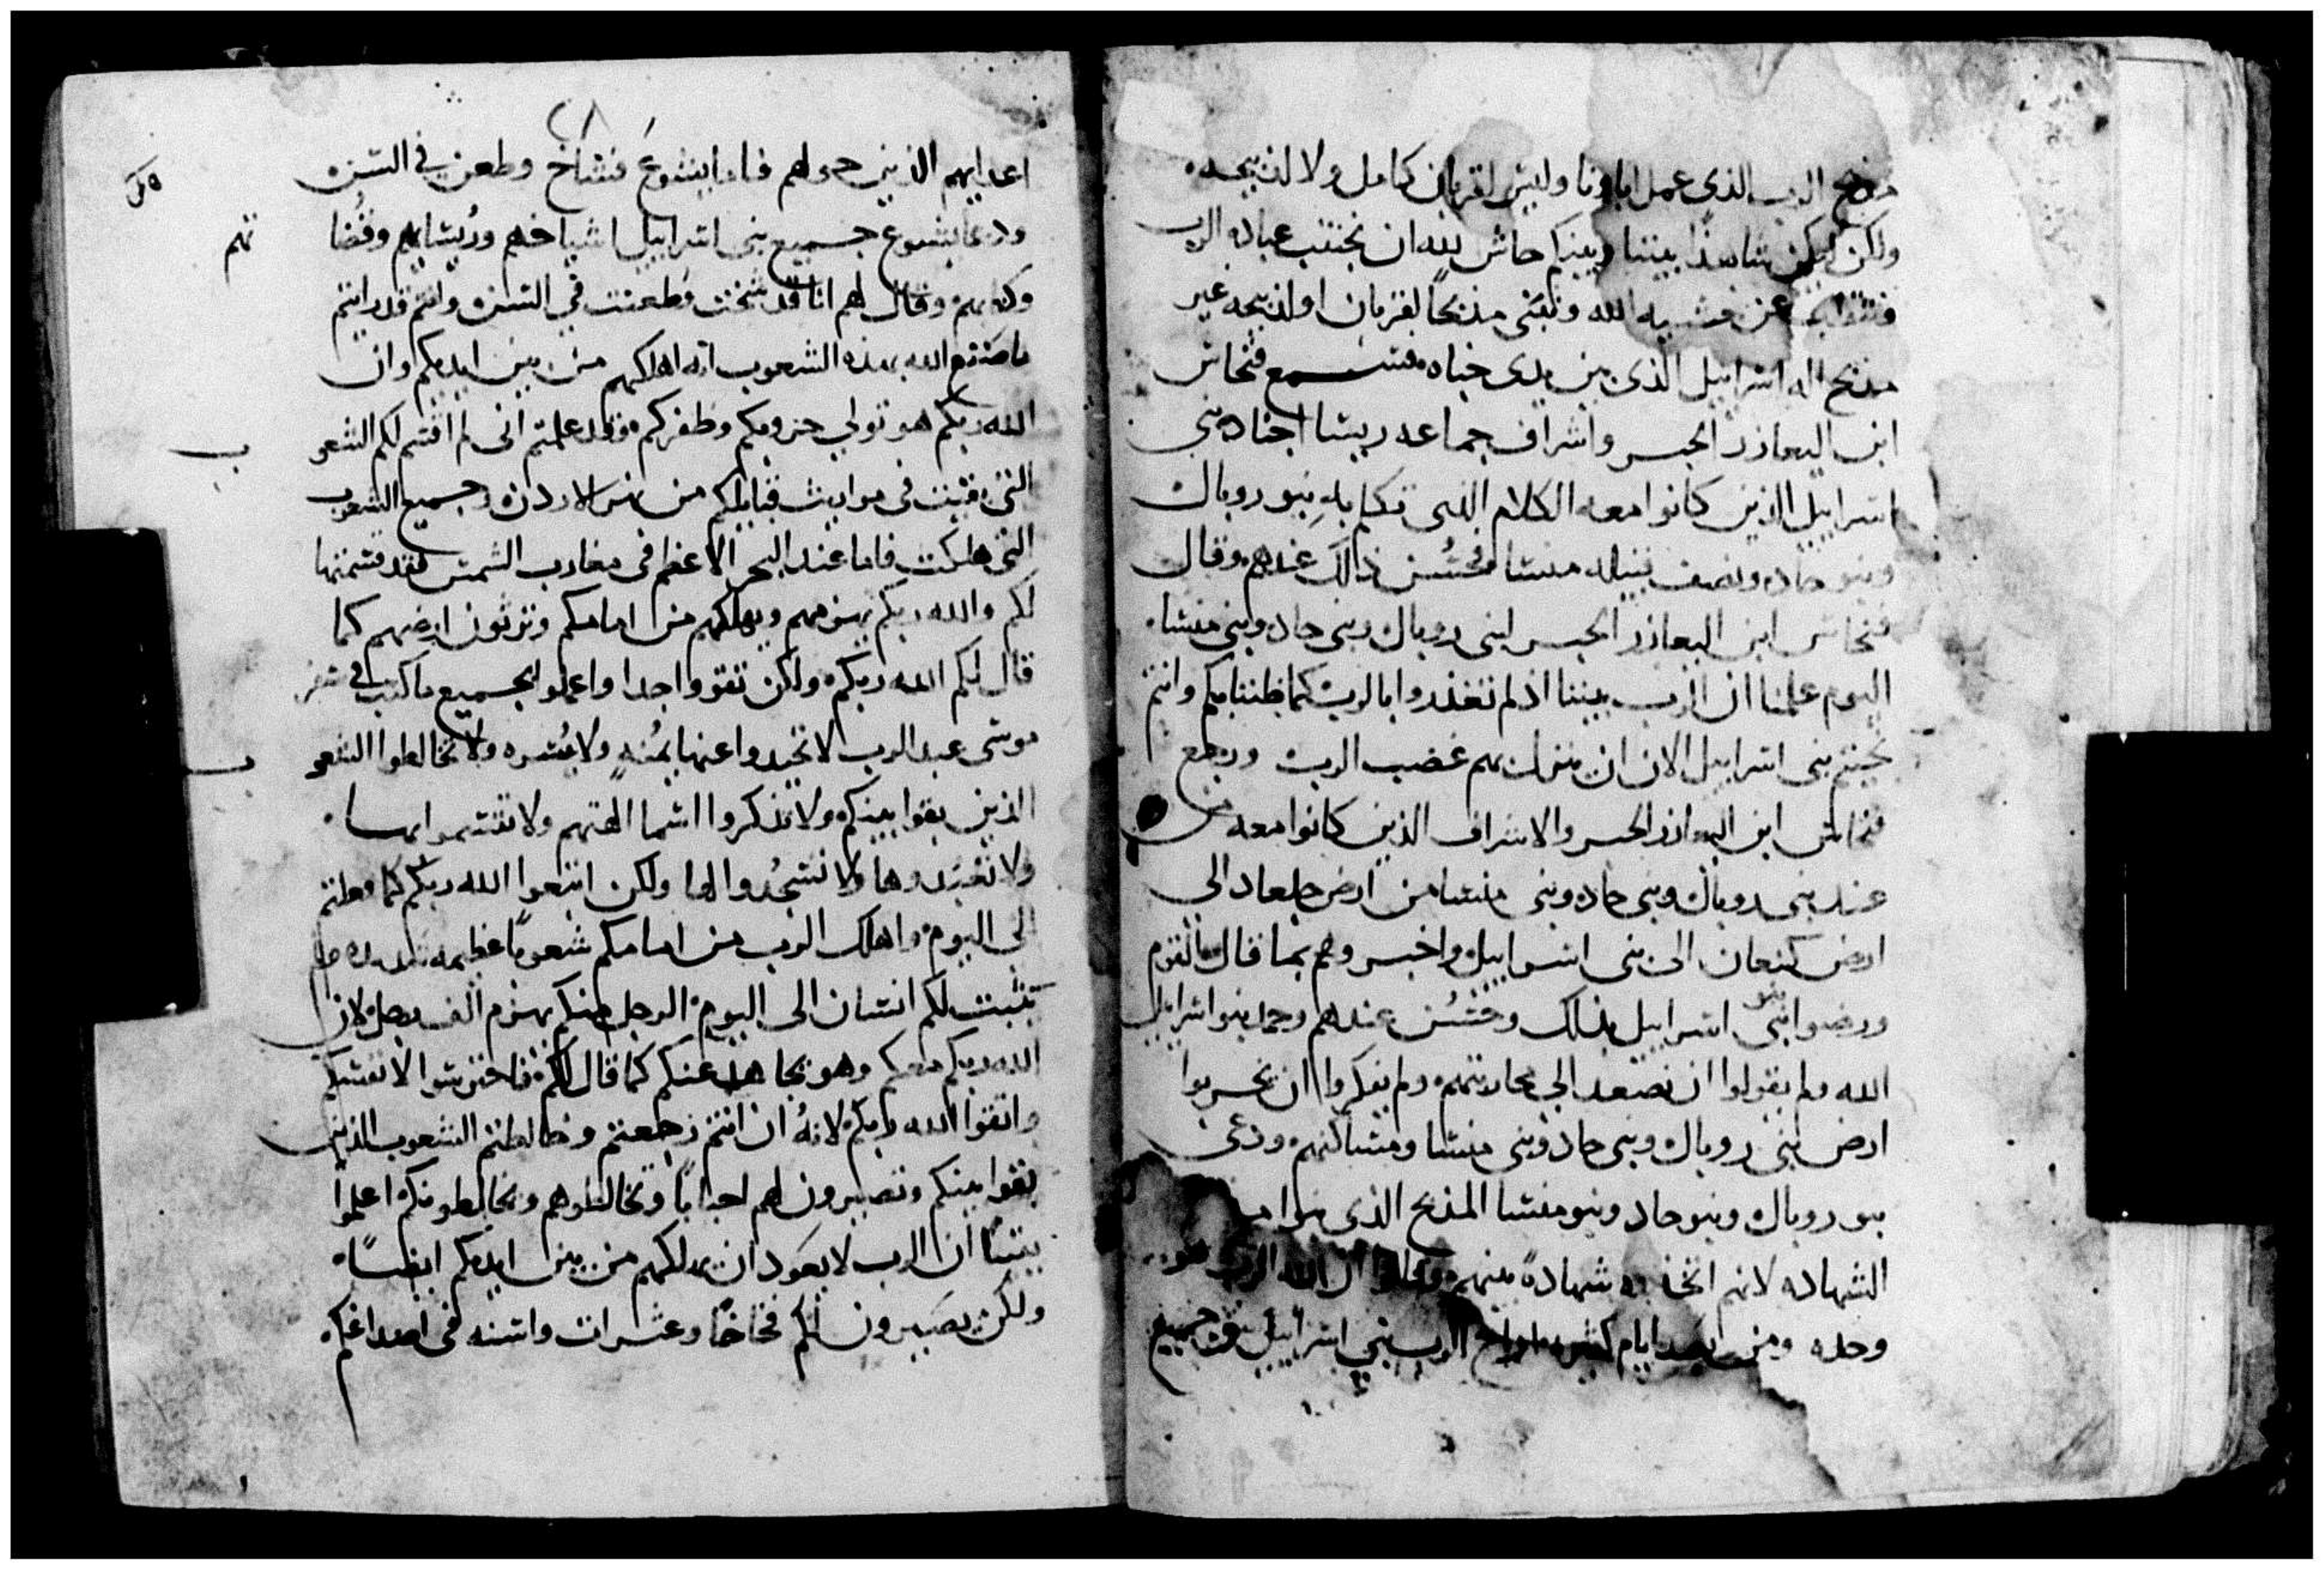 مذبح الرب الذي عمل اباونا وليس لقربان كامل ولا لذبيحه
ولكن ليكن شاهدًا بيننا وبينكم حاش لله ان نجتنب عباده الرب
عن مشيه الله ونبني مذبحًا لقربان او لذبيحه غير
مذبح اله اسراييل الذي بين يدي خباه فسمع فنحاس
ابن اليعازر الحبر واشراف جماعه ريسا اجناد بني
اسراييل الذين كانوا معه الكلام الذي تكلم به بنو روبال
وبنو جاد ونصف قبيله منسا فحسُن ذالك عندهم وقال
فنحاس ابن اليعازر الحبر لبني روبال وبني جاد وبني منسا
اليوم علمنا ان الرب بيننا اذ لم تغدروا بالرب كما ظننا بكم وانتم
نجيتم بني اسراييل الان ان ينزل بهم غضب الرب ورجع
فنحاس ابن اليعازر الحبر والاشراف الذين كانوا معه من
عند بني روبال وبني جاد وبني منسا من ارض جلعاد الى
ارض كنعان الى بني اسراييل واخبروهم بما قال القوم
ورضوا بنو اسراييل بذلك وحسُن عندهم وحمد بنو اسراييل
الله ولم يقولوا ان نصعد الى محاربتهم ولم يفكروا ان يخربوا
ارض بني روبال وبني جاد وبني منسا ومساكنهم ودعى
بنو روبال وبنو جاد وبنو منسا المذبح الذي بنوا
الشهاده لانهم اتخذوه شهادهً بينهم ان الله الرب هو
وحده ومن بعد ايام كثيره اراح الرب بني اسراييل من جميع
اعدايهم الذين حولهم فاما يشوع فشاخ وطعن في السن
ودعا يشوع جميع بني اسراييل اشياخهم وريسايهم وقُضا تهم
وكتابهم وقال لهم انا قد شخت وطعنت في السن وانتم قد رايتم
ما صنع الله بهذه الشعوب انه اهلكهم من بين ايديكم وان
الله ربكم هو تولي حروبكم وظفركم وقد علمتم اني لم اقسم لكم الشعو ب
التي بقيت في مواريث قبايلكم من نهر الاردن وجميع الشعوب
التي هلكت فاما عند البحر الاعظم في مغارب الشمس فقد قسمتها
لكم والله ربكم يهزمهم ويهلكهم من امامكم وترثون ارضهم كما
قال لكم الله ربكم ولكن تقووا جدا واعملوا بجميع ما كتب في سفر
موسى عبد الرب لا تحيدوا عنها يمُنه ولا يُسره ولا تخالطوا الشعو ب
الذين بقوا بينكم ولا تذكروا اسما الهتهم ولا تقسموا بها
ولا تعبدوها ولا تسجُدوا لها ولكن اتبعوا الله ربكم كما فعلتم
الى اليوم واهلك الرب من امامكم شعوبًا عظيمه شديده
يثبت لكم انسان الى اليوم الرجل منكم يهزم الف رجل لان
الله ربكم معكم وهو يجاهد عنكم كما قال لكم فاحترسوا لانفسكم
واتقوا الله ربكم لانهُ ان انتم رجعتم وخالطتم الشعوب الذين
بقوا بينكم وتصيرون لهم احبابًا وتخالطوهم ويخالطونكم اعلموا
يقينًا ان الرب لا يعود ان يهلكهم من بين ايديكم ايضًا
ولكن يصيرون لكم فخاخًا وعثرات واسنه في اصداغكم